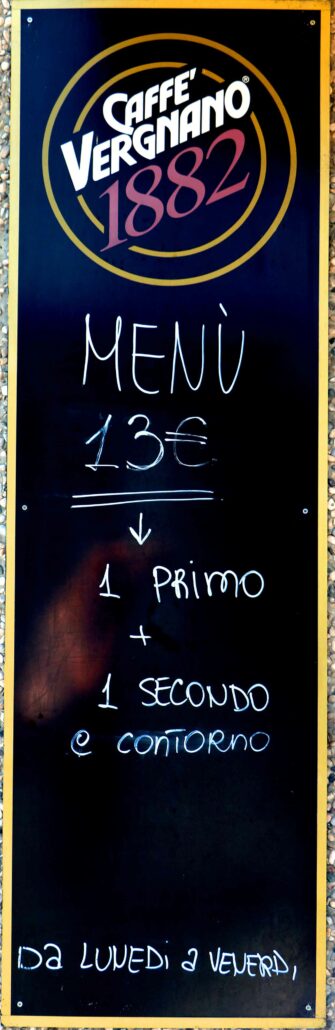 CAFFE'
VERGNANO®
1882
MENÙ
13€
↓
1 PRIMO
+
1 SECONDO
e CONTORNO
Da LUNEDì a VENERDì